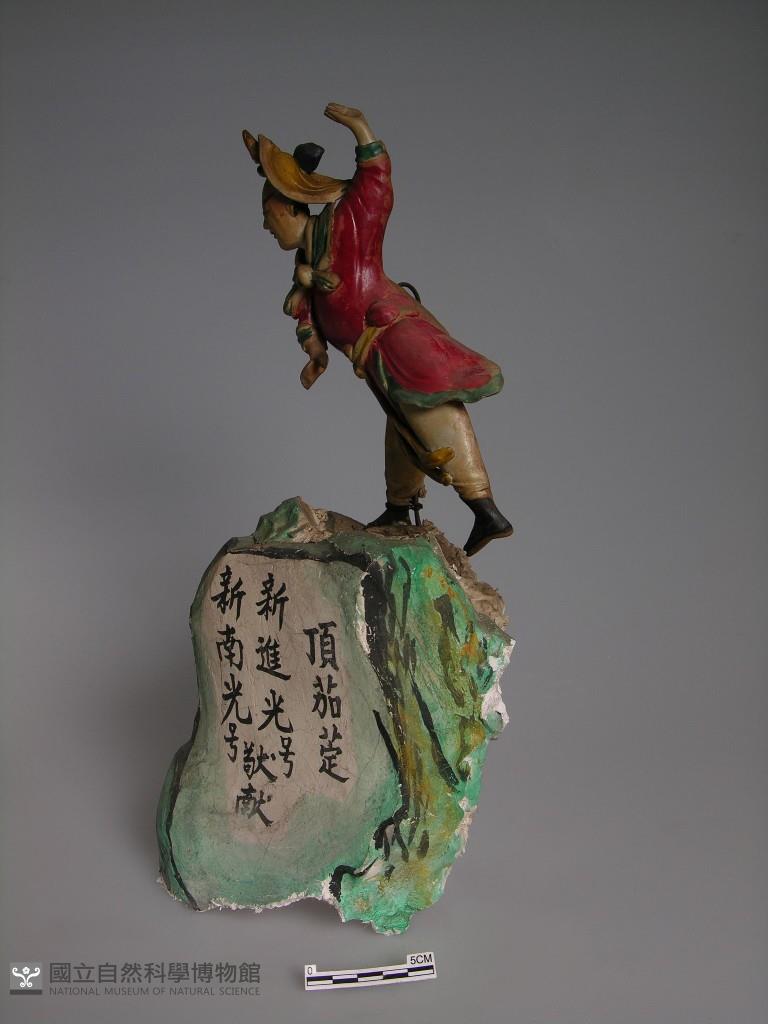 頂茄萣
新進光号
新南光号
敬献
國立自然科學博物館
NATIONAL MUSEUM OF NATURAL SCIENCE
0
5CM